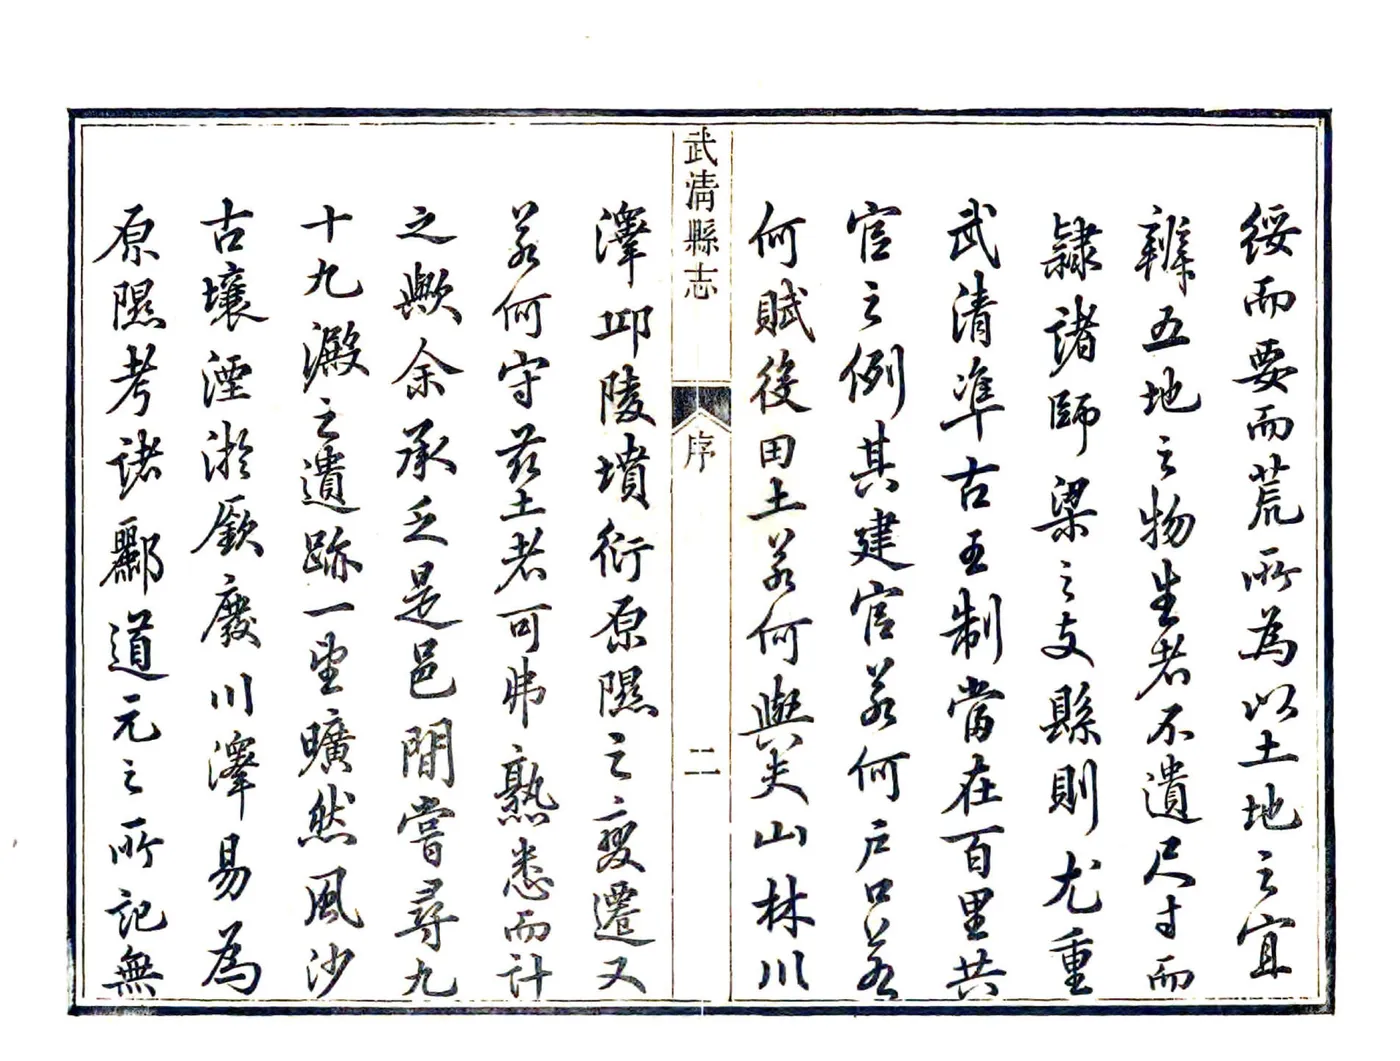 綏而要而荒所為以土地之宜
辨五地之物生者不遺尺寸而
隸諸師梁之支縣則尤重
武清準古王制當在百里共
官之例其建官若何戶口若
何賦役田土若何與夫山林川
武清縣志
序
二
澤邱陵墳衍原隰之變遷又
若何守玆土者可弗熟悉而計
之歟余承乏是邑閒嘗尋九
十九澱之遺跡一望曠然風沙
古壤湮淤厥廢川澤易為
原隰考諸酈道元之所記無